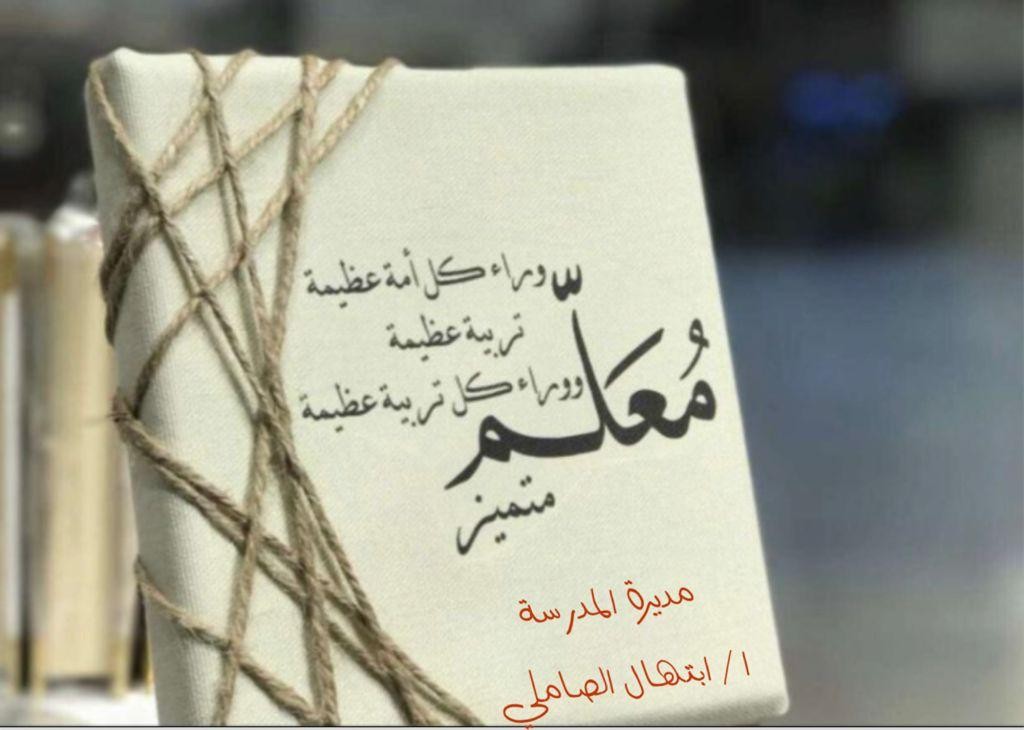 وراء كل أمة عظيمة
تربية عظيمة
ووراء كل تربية عظيمة
مُعَلّم
متميز
مديرة المدرسة
ا/ ابتهال الصاملي